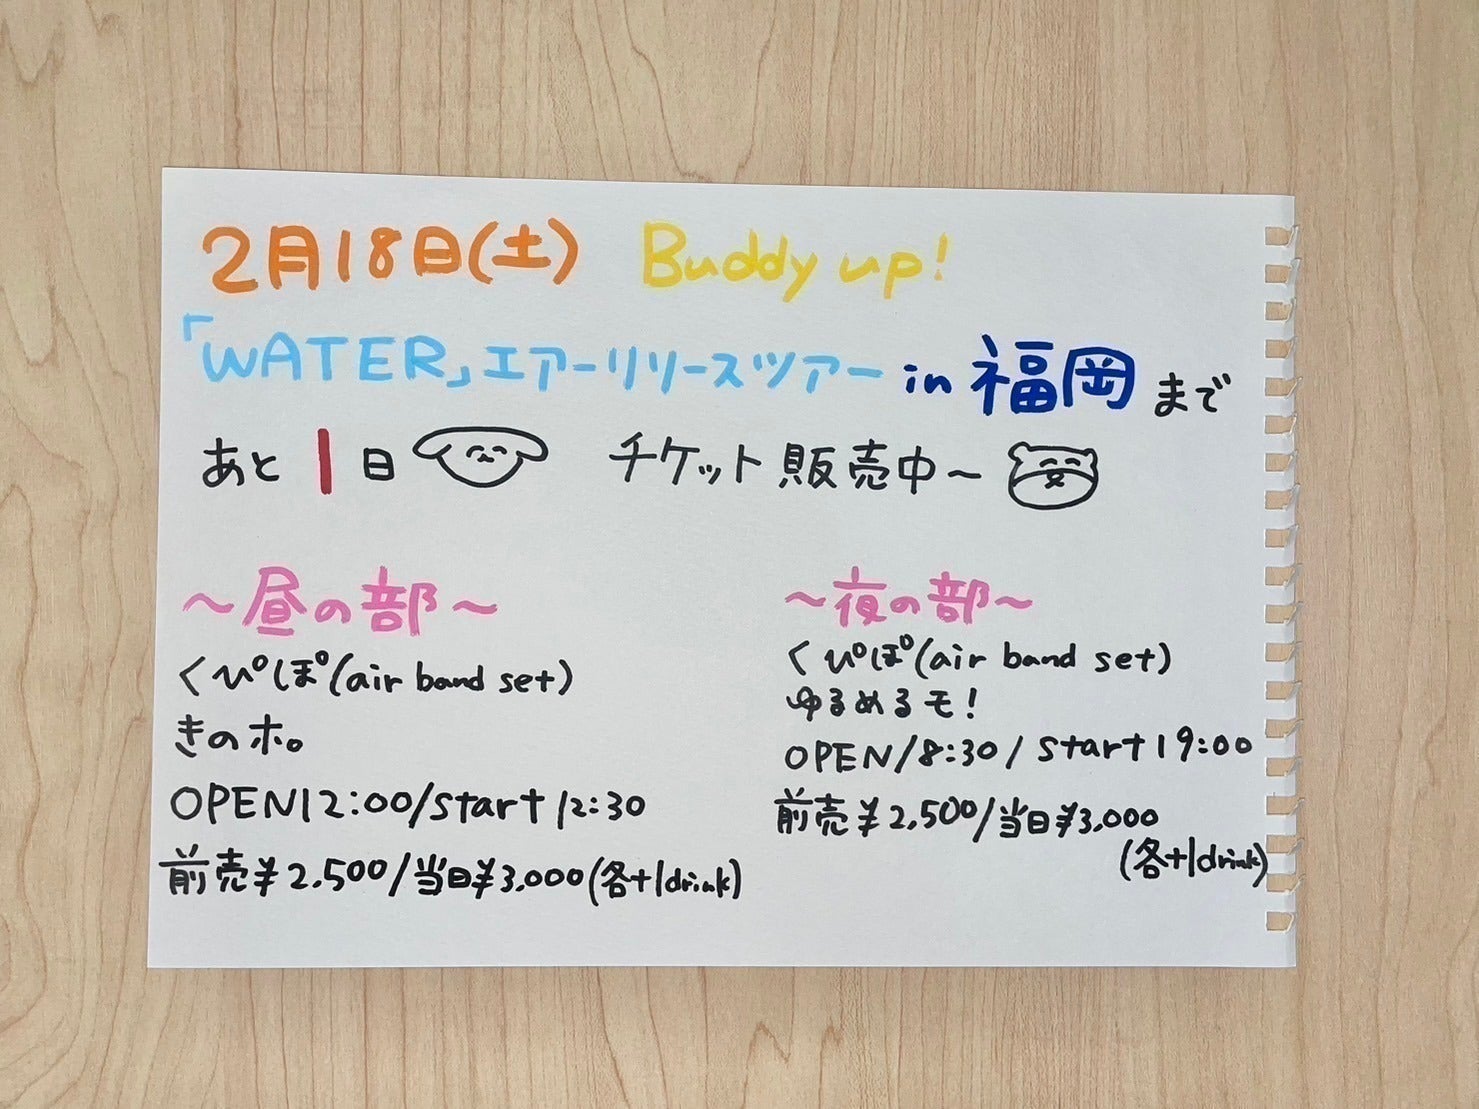 2月18日(土) Buddy up!
「WATER」エアーリリースツアー in 福岡 まで
あと 1 日 チケット販売中〜
〜昼の部〜
くぴぽ(air band set)
きのホ。
OPEN12:00/start 12:30
前売¥2,500/当日¥3,000(各+1drink)
〜夜の部〜
くぴぽ(air band set)
ゆるめるモ!
OPEN18:30/start 19:00
前売¥2,500/当日¥3,000
(各+1drink)